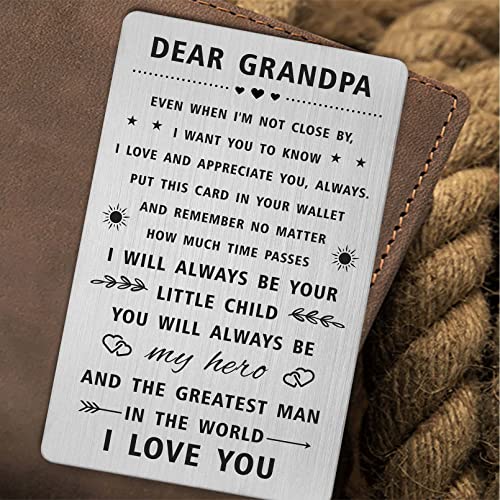 DEAR GRANDPA
EVEN WHEN I'M NOT CLOSE BY,
I WANT YOU TO KNOW
I LOVE AND APPRECIATE YOU, ALWAYS.
PUT THIS CARD IN YOUR WALLET
AND REMEMBER NO MATTER
HOW MUCH TIME PASSES
I WILL ALWAYS BE YOUR
LITTLE CHILD
YOU WILL ALWAYS BE
my hero
AND THE GREATEST MAN
IN THE WORLD
I LOVE YOU